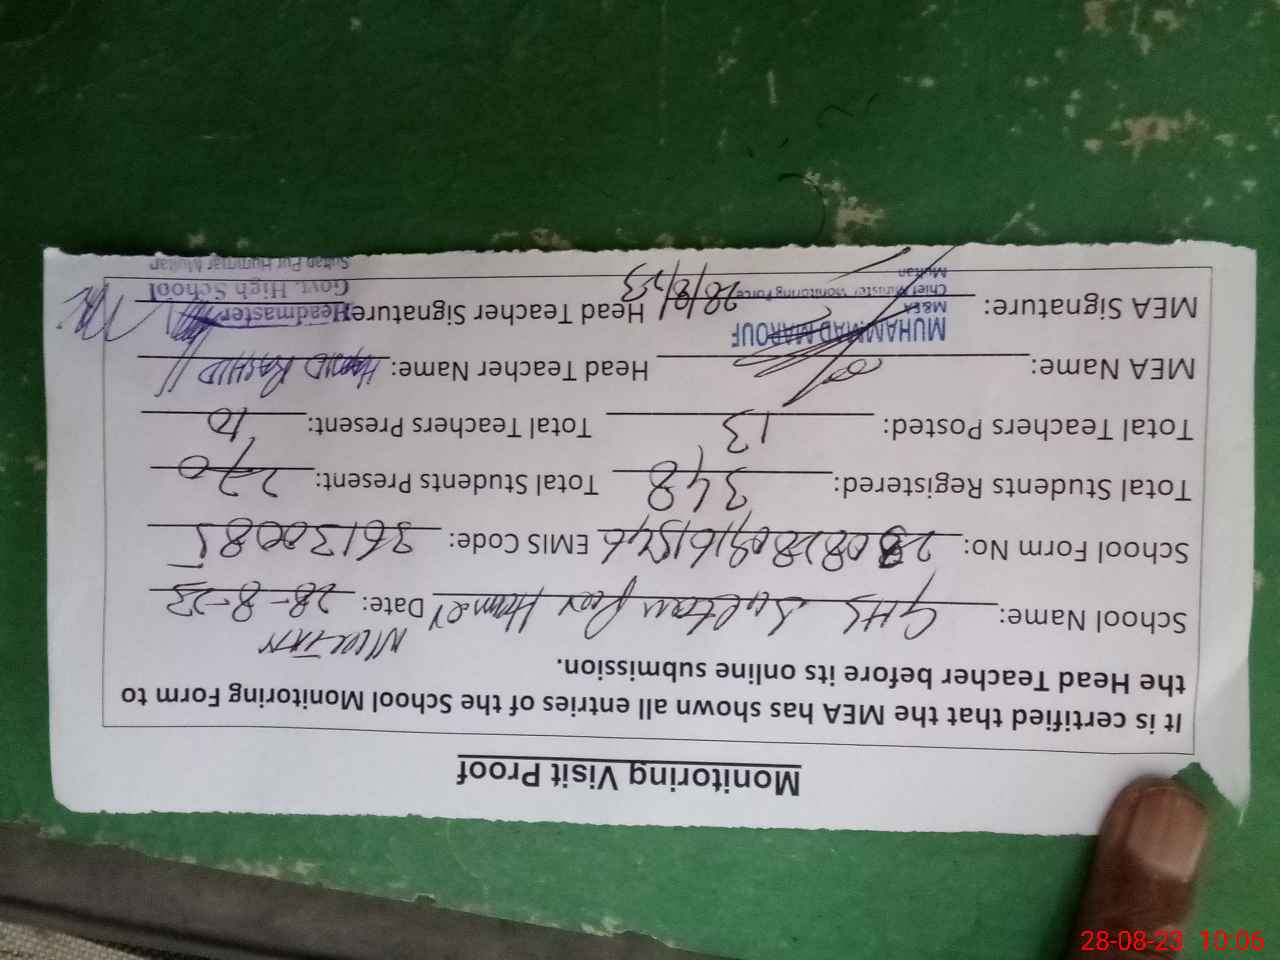 Monitoring Visit Proof
It is certified that the MEA has shown all entries of the School Monitoring Form to
the Head Teacher before its online submission.
School Name: GHS Sultan Pur Hammer Date: 28-8-23
School Form No: EMIS Code: 36130085
Total Students Registered: 348 Total Students Present: 270
Total Teachers Posted: 13 Total Teachers Present: 10
MEA Name: Head Teacher Name: HAMID RASHID
MUHAMMAD MAROUF
M&EA
Chief Minister Monitoring Force
Multan
MEA Signature: 28/8/23 Head Teacher Signature:
Headmaster
Govt. High School
Sultan Pur Hummar Multan
28-08-23 10:06